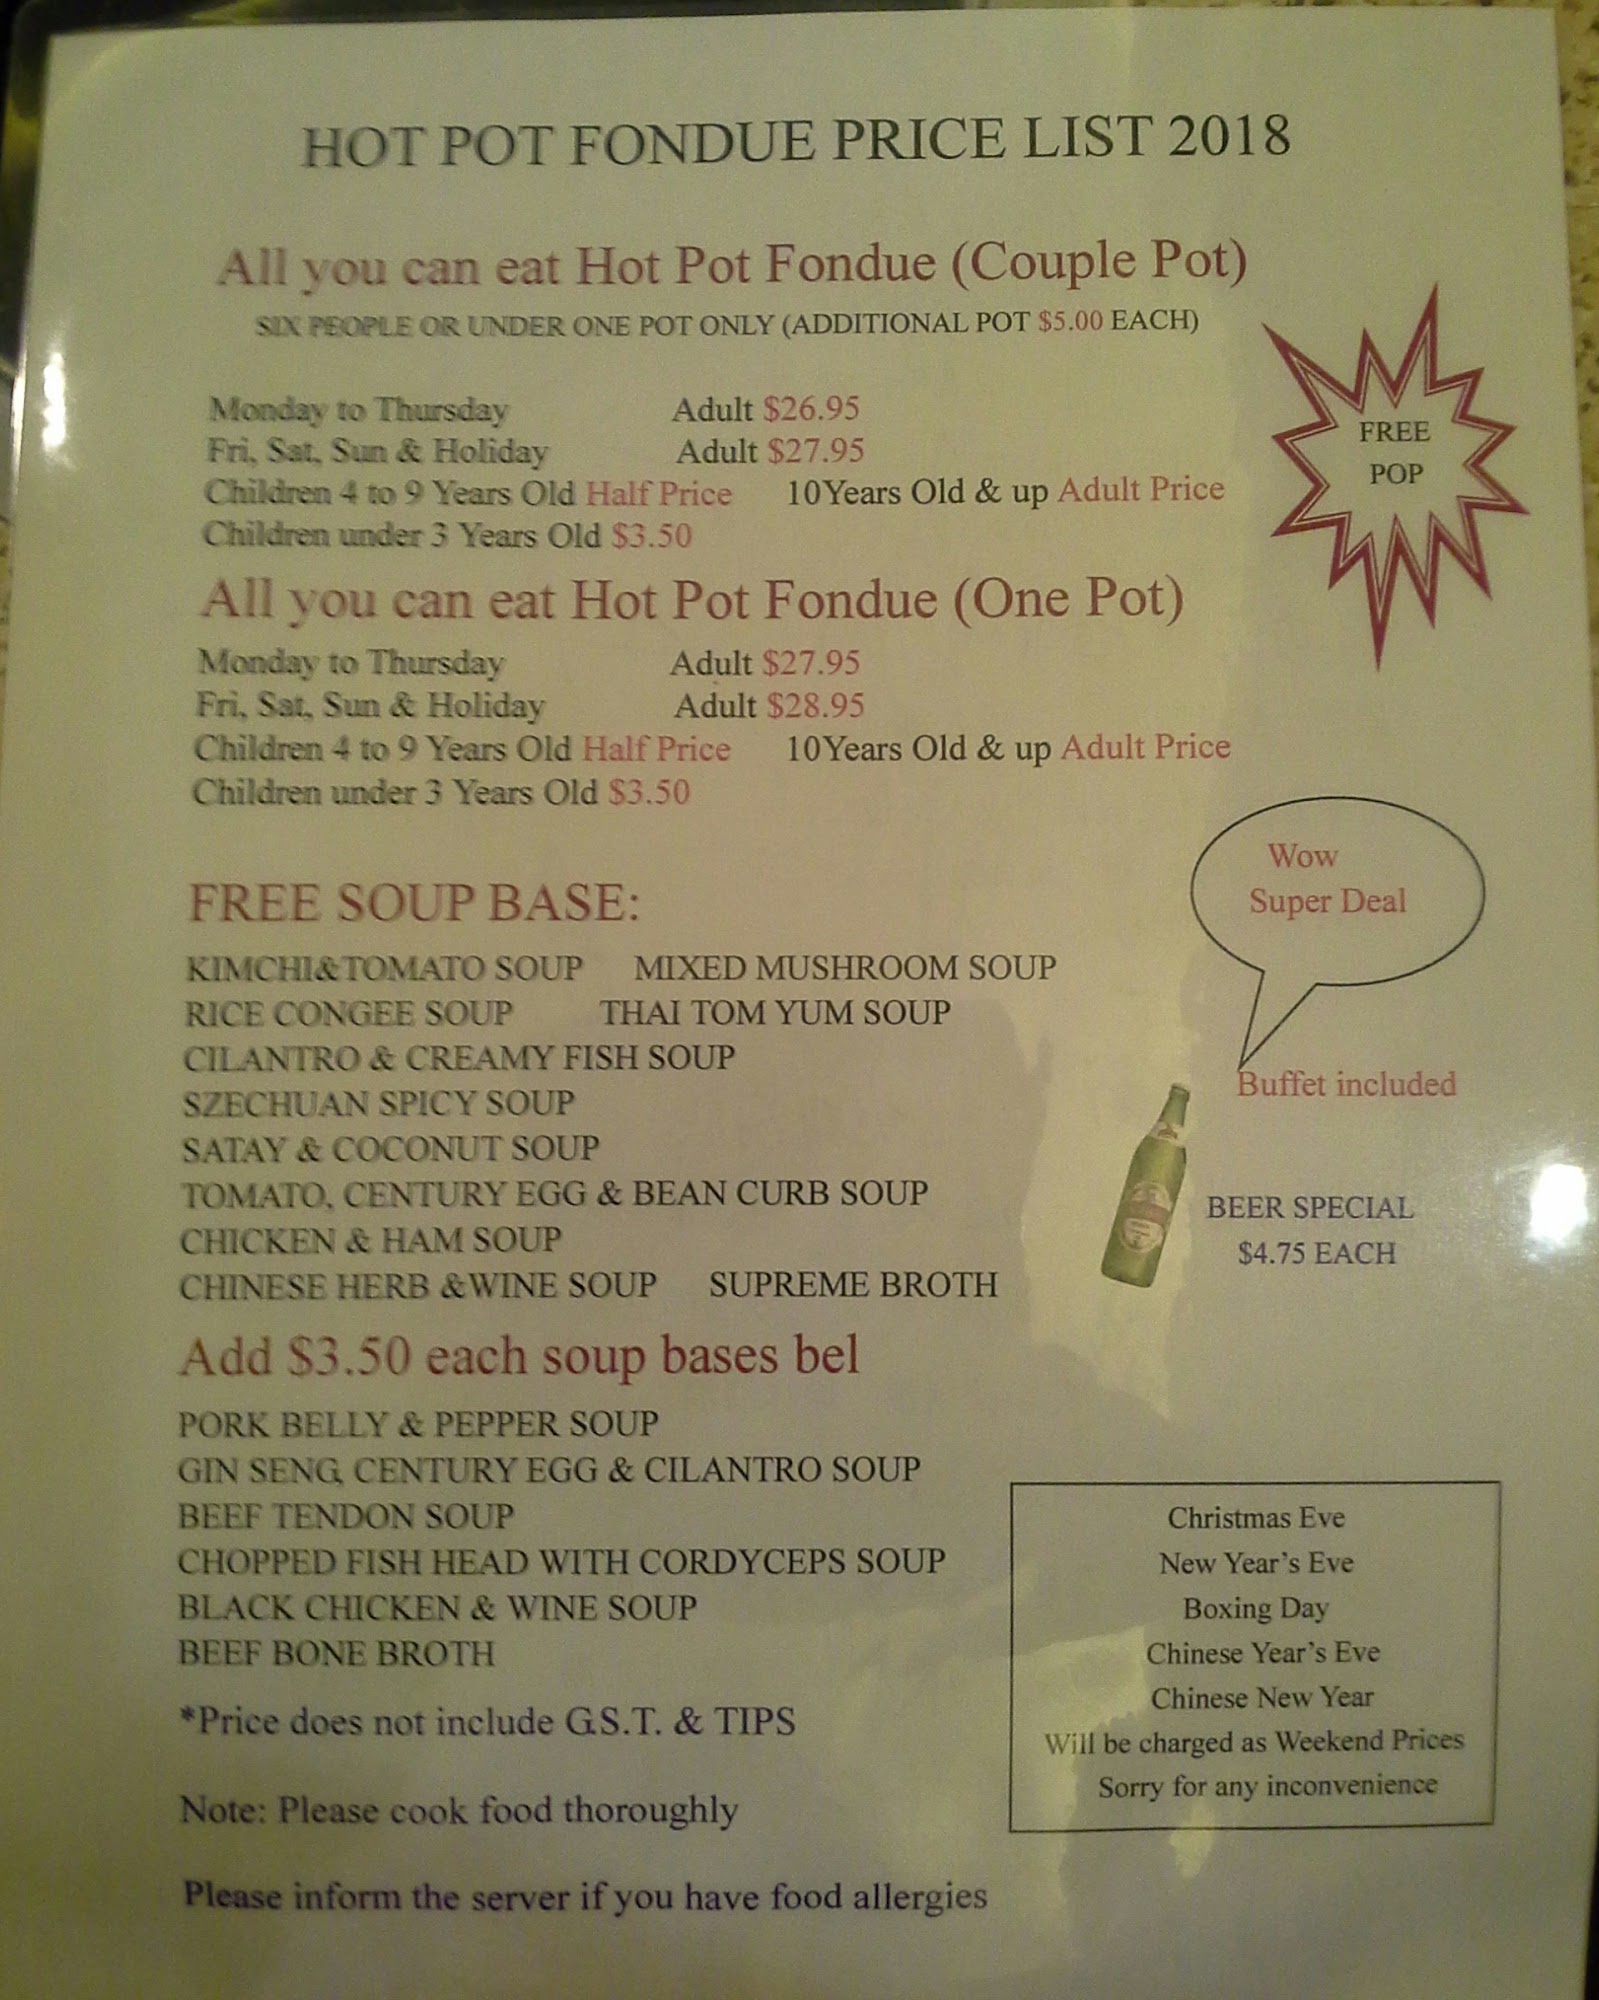 HOT POT FONDUE PRICE LIST 2018
All you can eat Hot Pot Fondue (Couple Pot)
SIX PEOPLE OR UNDER ONE POT ONLY (ADDITIONAL POT $5.00 EACH)
Monday to Thursday Adult $26.95
Fri, Sat, Sun & Holiday Adult $27.95
Children 4 to 9 Years Old Half Price 10Years Old & up Adult Price
Children under 3 Years Old $3.50
FREE
POP
All you can eat Hot Pot Fondue (One Pot)
Monday to Thursday Adult $27.95
Fri, Sat, Sun & Holiday Adult $28.95
Children 4 to 9 Years Old Half Price 10Years Old & up Adult Price
Children under 3 Years Old $3.50
Wow
Super Deal
Buffet included
FREE SOUP BASE:
KIMCHI&TOMATO SOUP MIXED MUSHROOM SOUP
RICE CONGEE SOUP THAI TOM YUM SOUP
CILANTRO & CREAMY FISH SOUP
SZECHUAN SPICY SOUP
SATAY & COCONUT SOUP
TOMATO, CENTURY EGG & BEAN CURB SOUP
CHICKEN & HAM SOUP
CHINESE HERB &WINE SOUP SUPREME BROTH
BEER SPECIAL
$4.75 EACH
Add $3.50 each soup bases bel
PORK BELLY & PEPPER SOUP
GIN SENG, CENTURY EGG & CILANTRO SOUP
BEEF TENDON SOUP
CHOPPED FISH HEAD WITH CORDYCEPS SOUP
BLACK CHICKEN & WINE SOUP
BEEF BONE BROTH
*Price does not include G.S.T. & TIPS
Note: Please cook food thoroughly
Please inform the server if you have food allergies
Christmas Eve
New Year's Eve
Boxing Day
Chinese Year's Eve
Chinese New Year
Will be charged as Weekend Prices
Sorry for any inconvenience